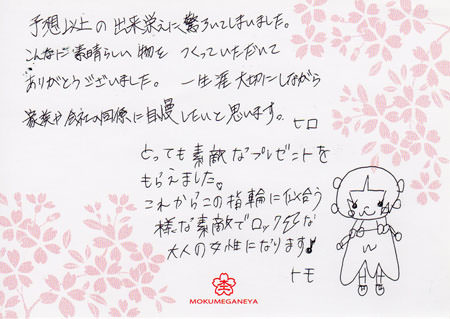 予想以上の出来栄えに驚ろいてしまいました。
こんなに素晴らしい物をつくっていただいて
ありがとうございました。一生涯大切にしながら
家族や会社の同僚に自慢したいと思います。
ヒロ
とっても素敵なプレゼントを
もらえました。
これからこの指輪に似合う
様な素敵でロックな
大人の女性になります♪
トモ
MOKUMEGANEYA